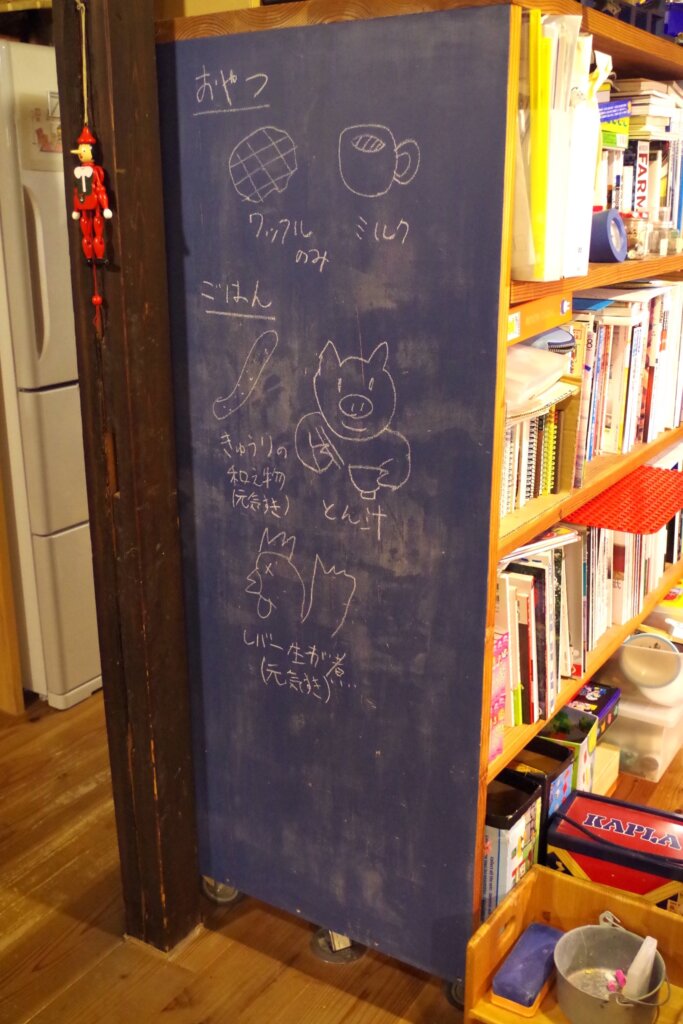 おやつ
ワッフル
のみ
ミルク
ごはん
きゅうりの
和え物
とん汁
レバー生が煮
KAPLA
FARM